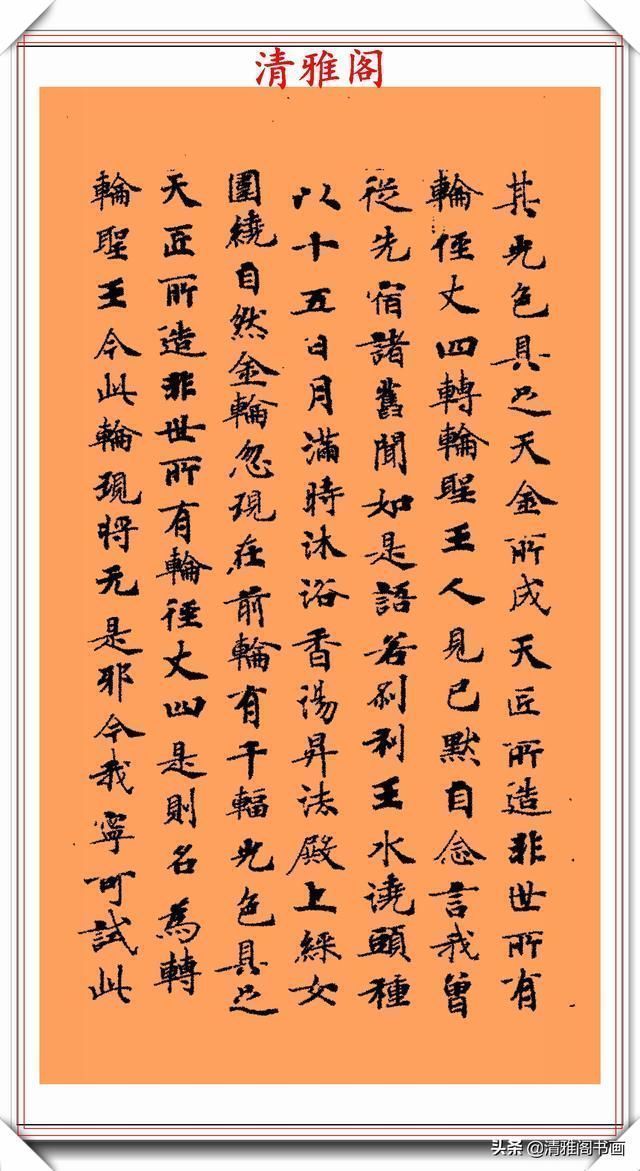 清雅阁
其光色具足天金所成天匠所造非世所有
輪徑丈四轉輪聖王人見已默自念言我曾
從先宿諸舊聞如是語若刹利王水澆頭種
以十五日月滿時沐浴香湯昇法殿上綵女
圍繞自然金輪忽現在前輪有千輻光色具足
天匠所造非世所有輪徑丈四是則名為轉
輪聖王今此輪現將无是耶今我寧可試此
头条@清雅阁书画